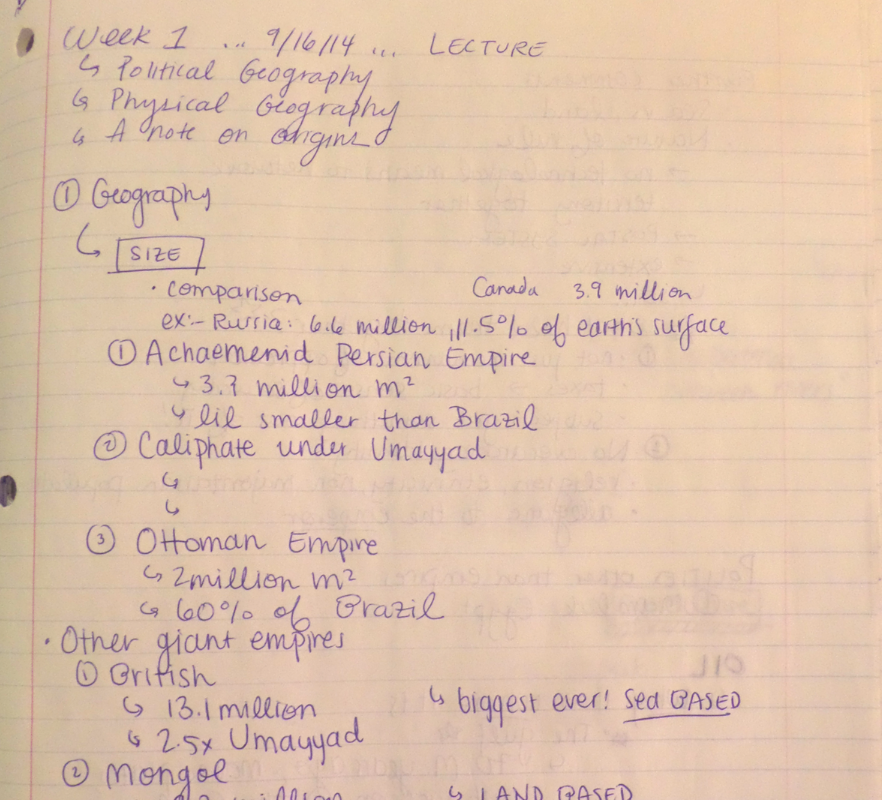 Week 1 ... 9/16/14 ... LECTURE
↳ Political Geography
↳ Physical Geography
↳ A note on origins
① Geography
↳ SIZE
· comparison Canada 3.9 million
ex:- Russia: 6.6 million, 11.5% of earth's surface
① Achaemenid Persian Empire
↳ 3.? million m²
↳ lil smaller than Brazil
② Caliphate under Umayyad
↳
↳
③ Ottoman Empire
↳ 2million m²
↳ 60% of Brazil
· Other giant empires
① British
↳ 13.1 million ↳ biggest ever! Sea BASED
↳ 2.5x Umayyad
② Mongol
million ↳ LAND BASED